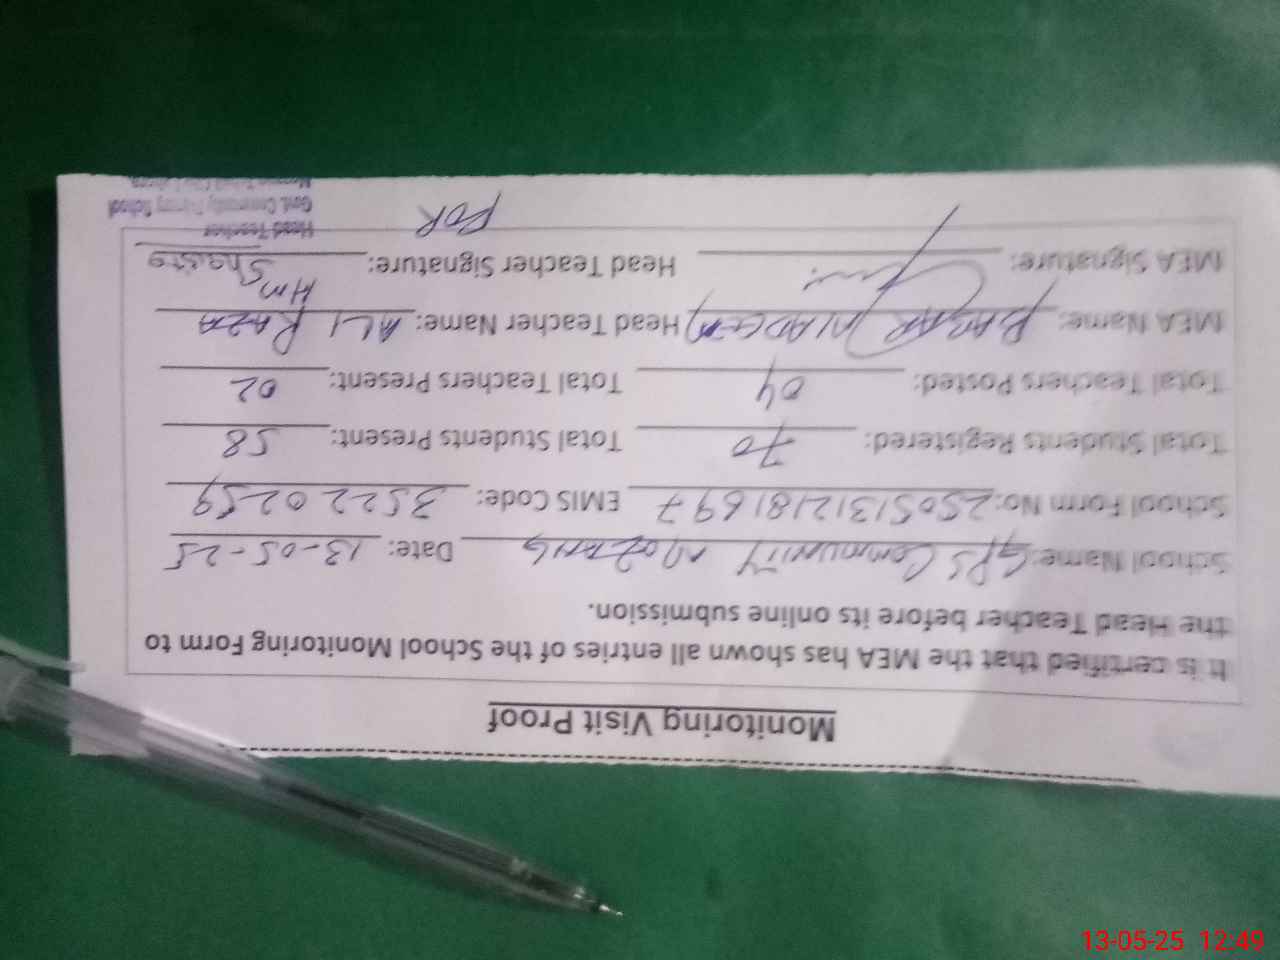 Monitoring Visit Proof
It is certified that the MEA has shown all entries of the School Monitoring Form to
the Head Teacher before its online submission.
School Name: GPS Community Mozang Date: 13-05-25
School Form No: 25051312181697 EMIS Code: 35220259
Total Students Registered: 70 Total Students Present: 58
Total Teachers Posted: 04 Total Teachers Present: 02
MEA Name: Head Teacher Name: ALI RAZA
HM
MEA Signature: Head Teacher Signature: Shaista
FOR
Head Teacher
Govt. Community Primary School
13-05-25 12:49